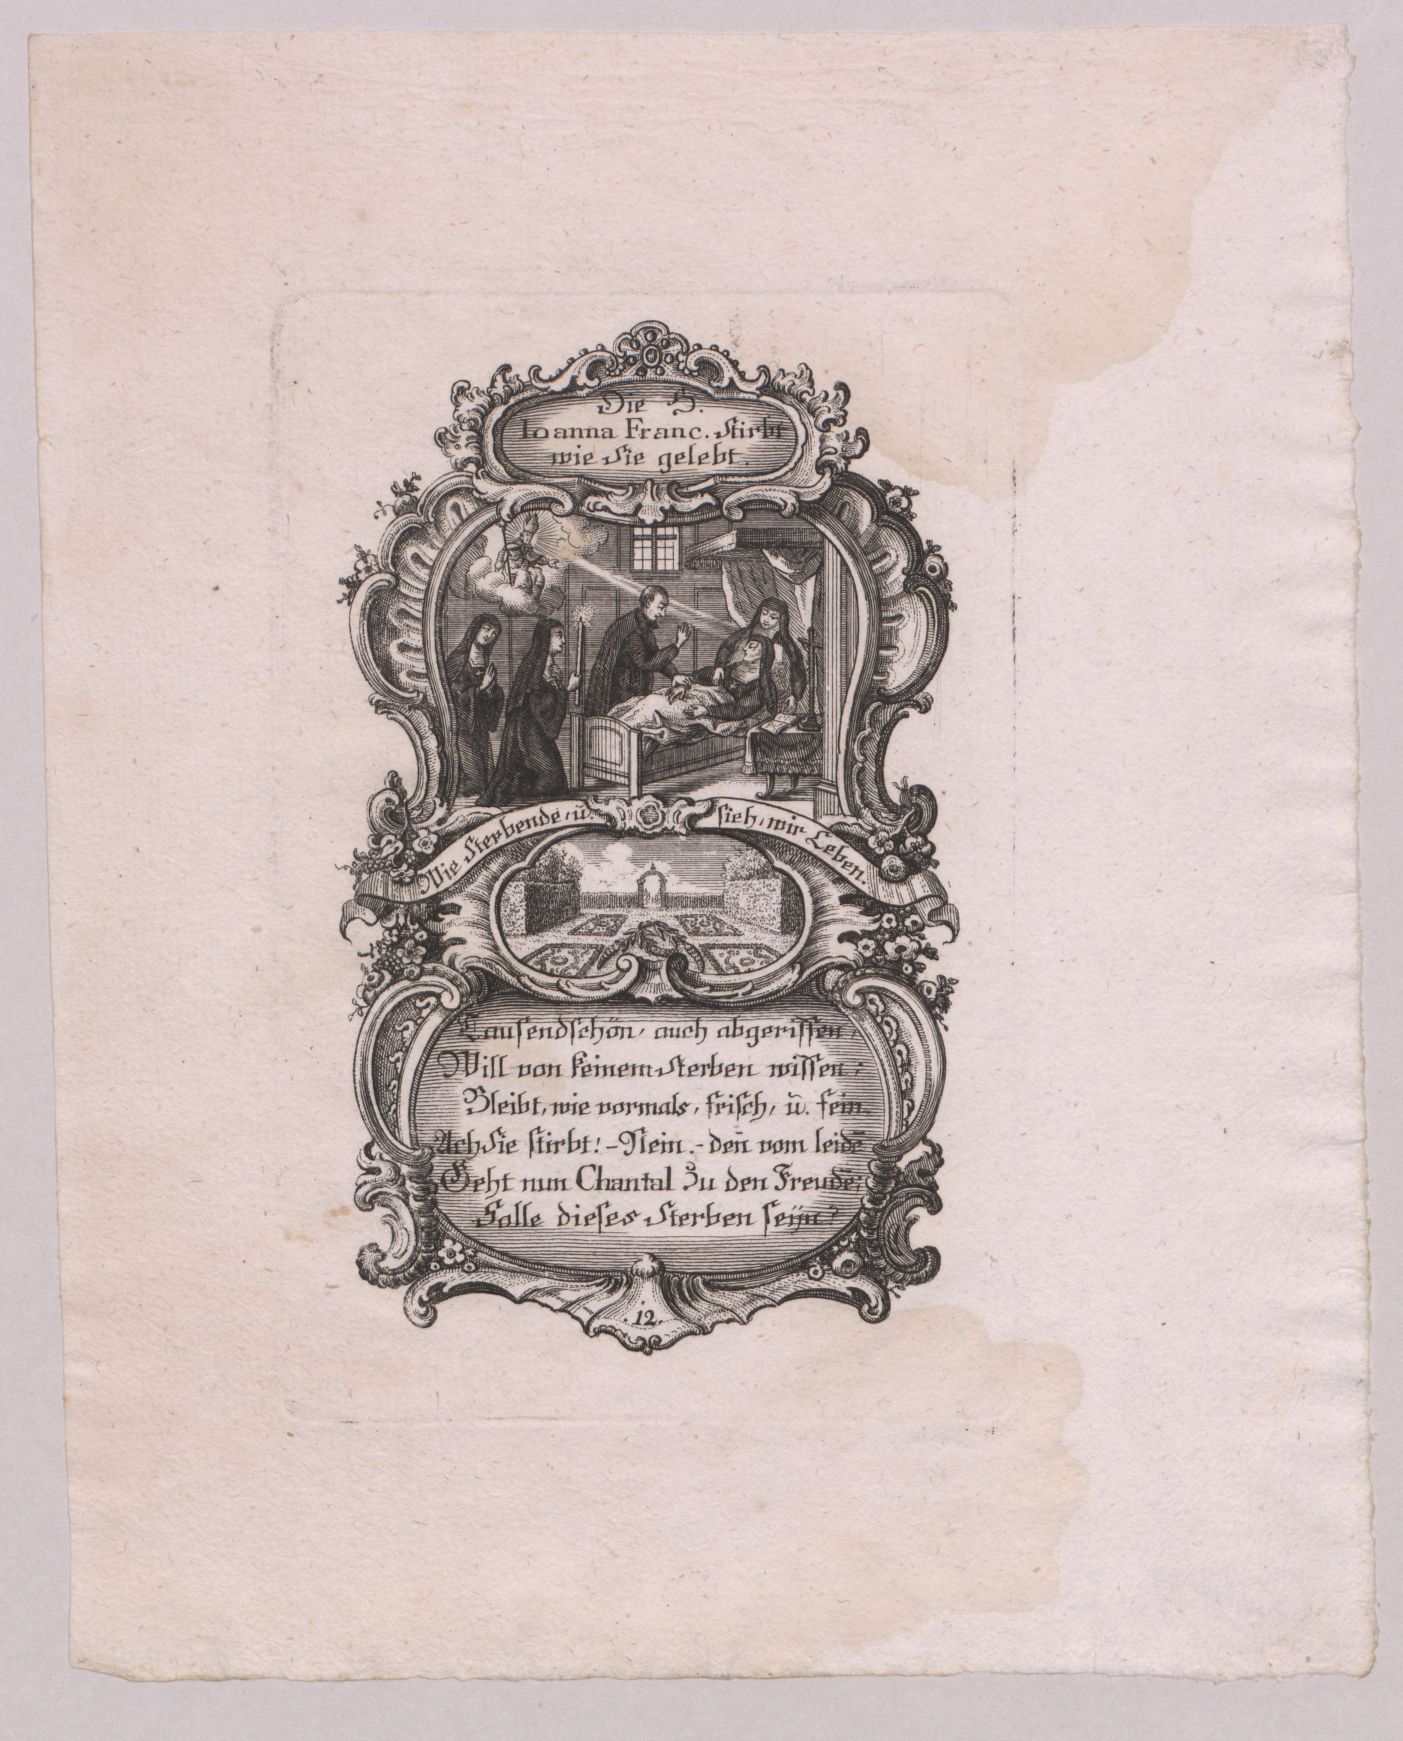 Die H.
Ioanna Franc. Stirbt
wie Sie gelebt.
Wie Sterbende, ū. sieh, wir Leben.
Tausendschön, auch abgerissen,
Will von keinem Sterben wissen,
Bleibt, wie vormals, frisch, ū. fein.
Ach Sie stirbt! - Nein. - deñ vom leidē
Geht nun Chantal Zu den Freudē;
Solle dieses Sterben seÿn?
.12.